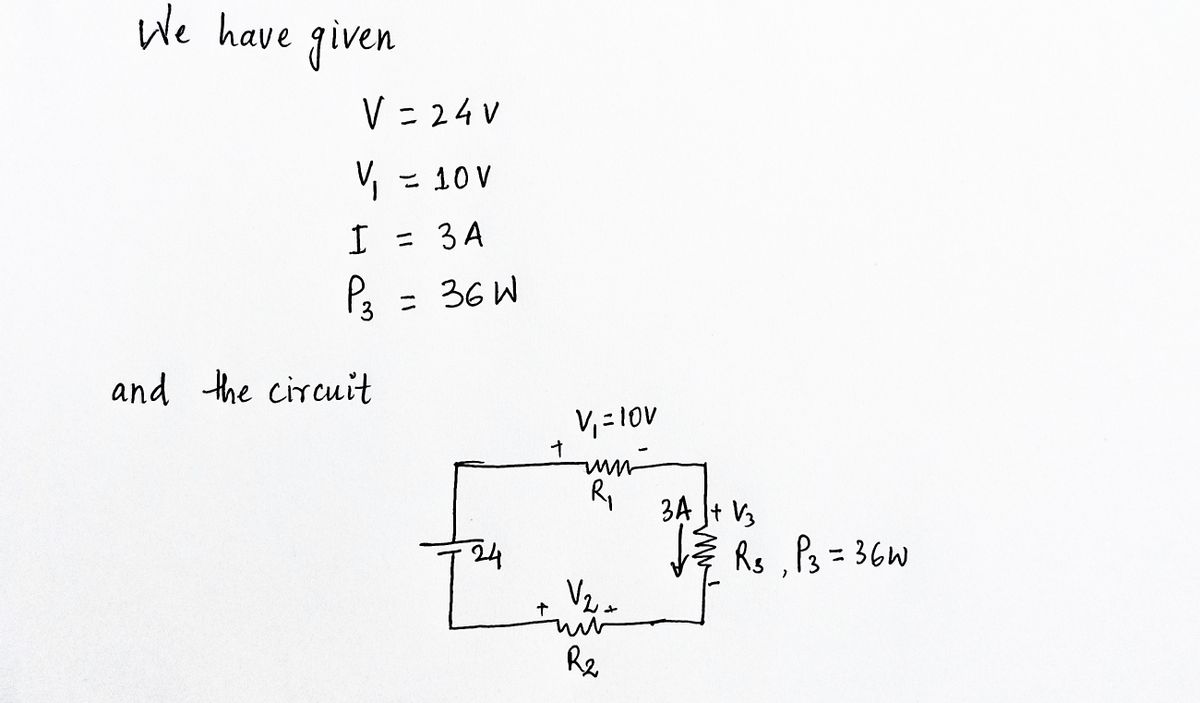 We have given
V = 24 V
V₁ = 10 V
I = 3 A
P₃ = 36 W
and the circuit
V₁ = 10V
+ -
R₁
3A + V₃
24
R₃ , P₃ = 36W
-
V₂
+ +
R₂